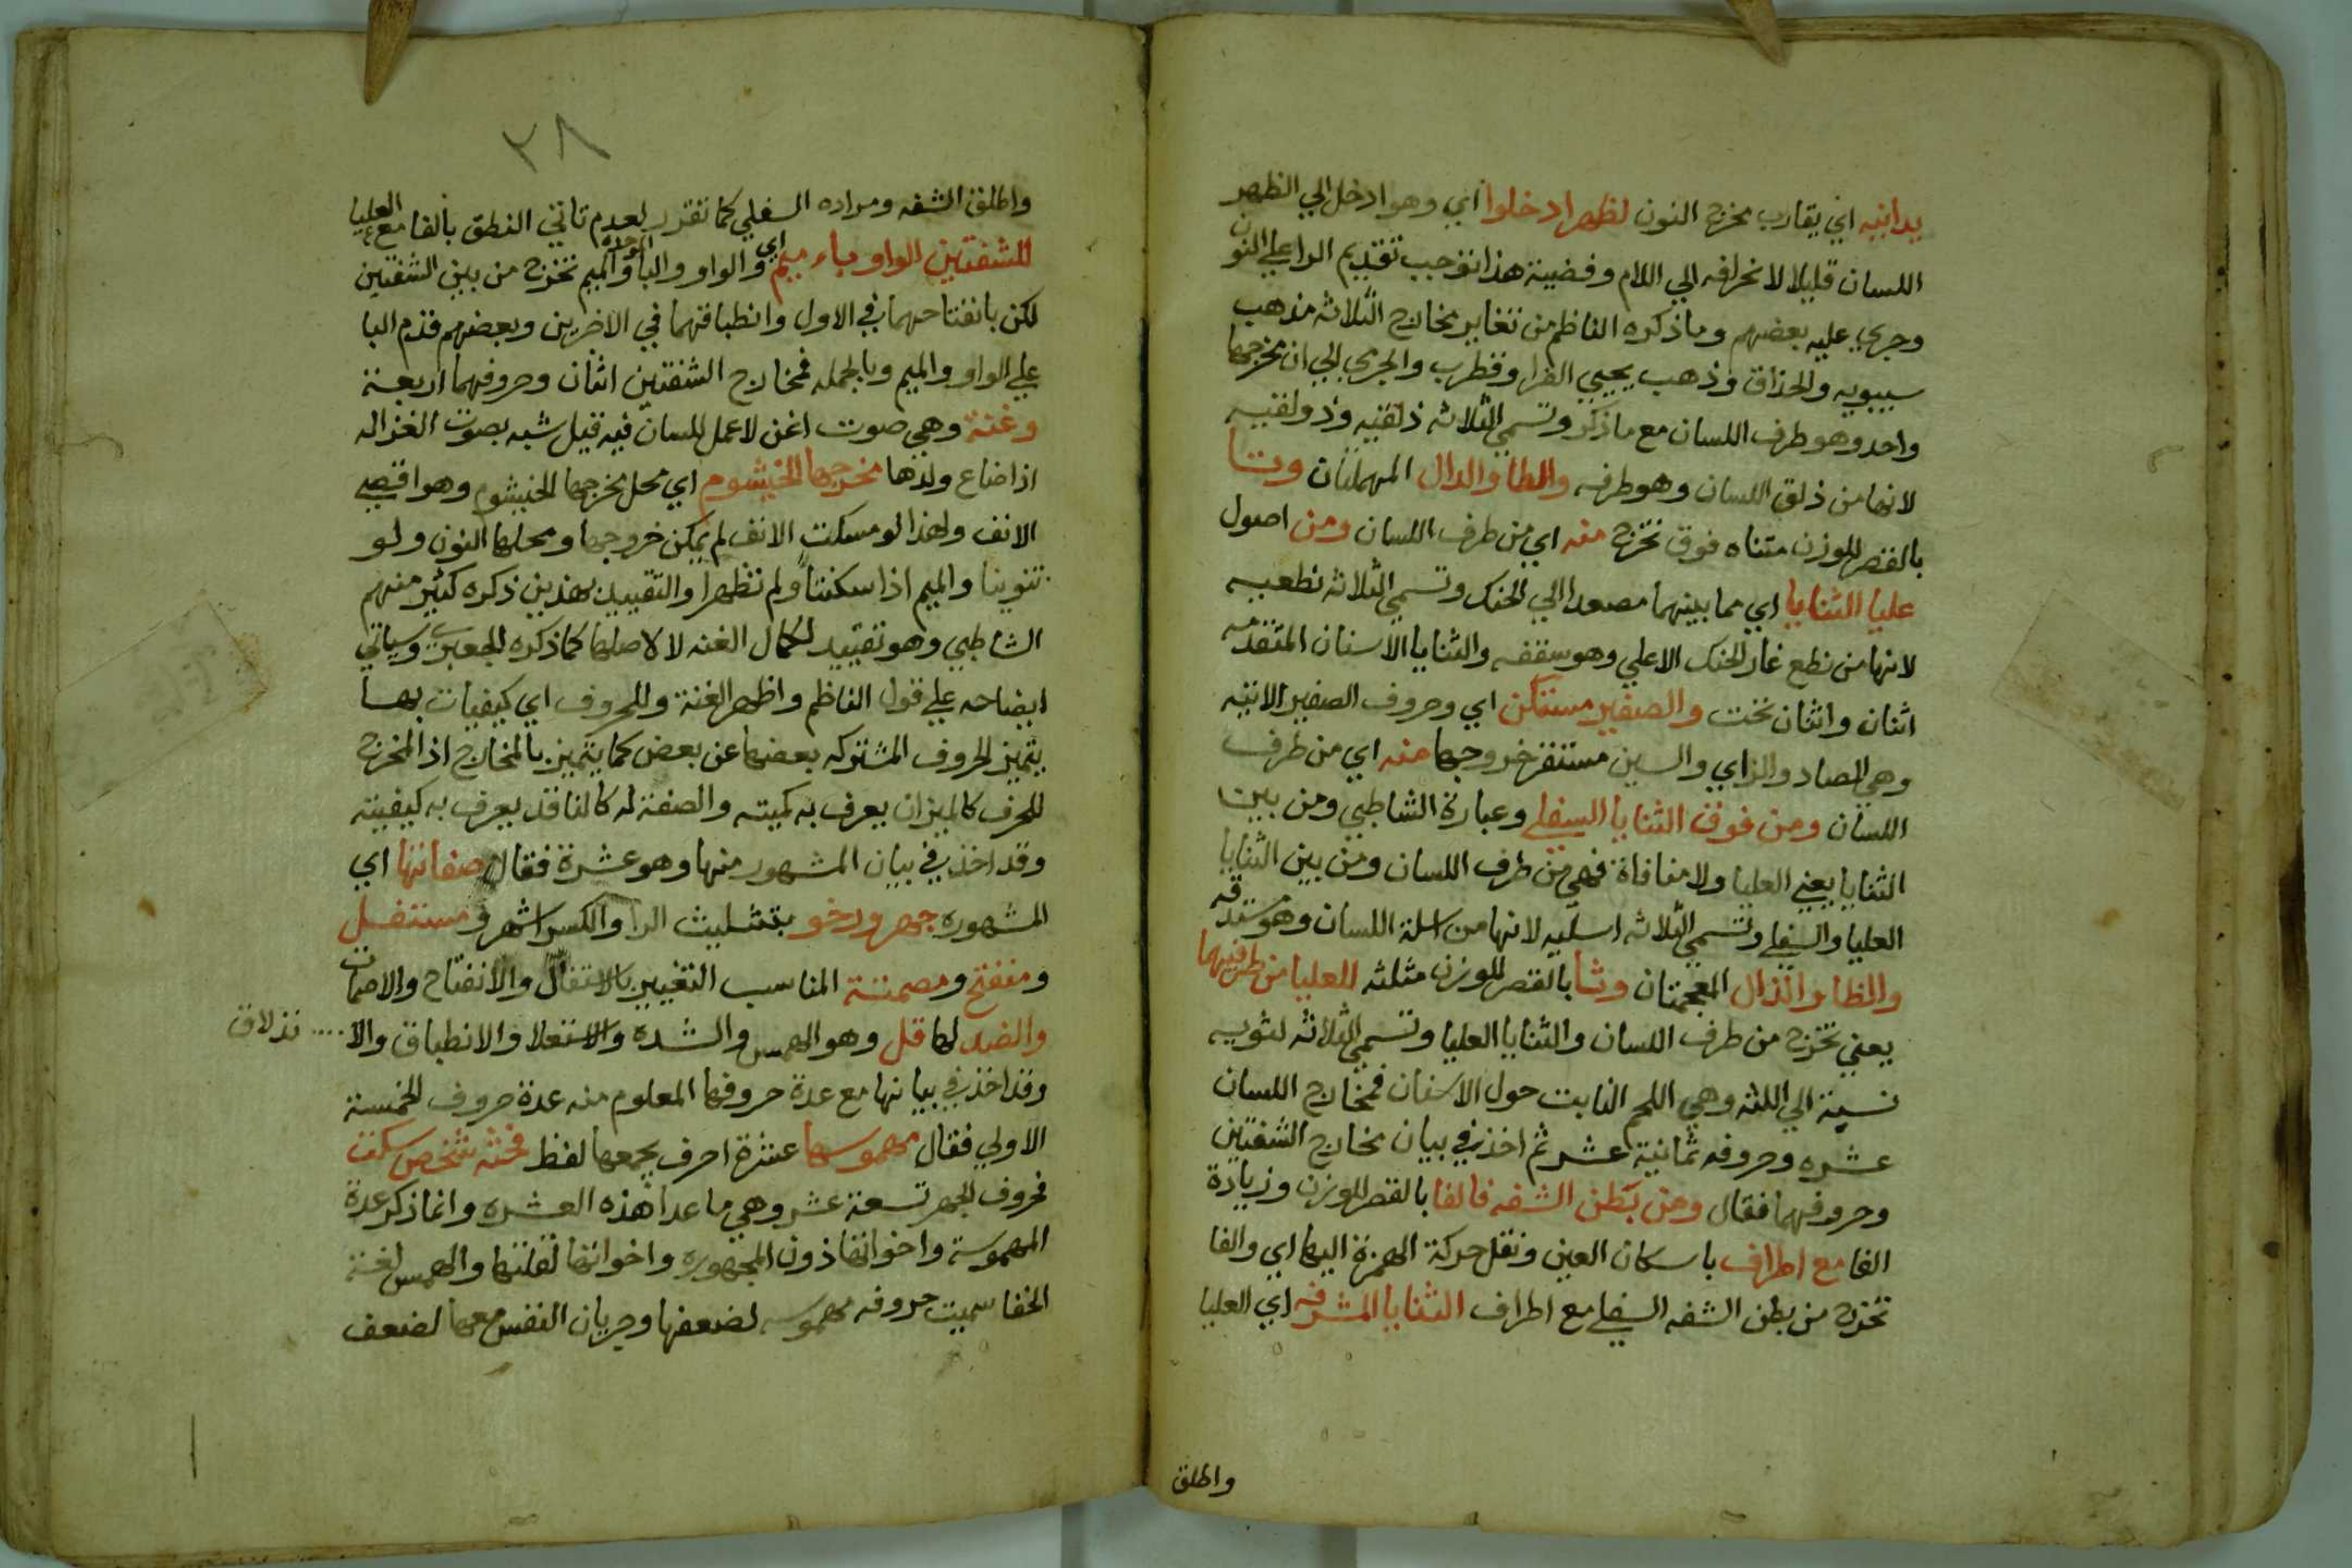 يدانيه اي يقارب مخرج النون لظهر ادخلوا اي وهو ادخل الي الظهر
اللسان قليلا لانحرافه الي اللام وقضية هذا توجب تقديم الرا علي النون
وجري عليه بعضهم وما ذكره الناظم من تغاير مخارج الثلاثه مذهب
سيبويه والحذاق وذهب يحيي الفرا وقطرب والجرمي الي ان مخرجها
واحد وهو طرف اللسان مع ما ذكر وتسمي الثلاثه ذلقيه وذولقيه
لانها من ذلق اللسان وهو طرفه والطا والدال المهملتان وتا
بالقصر للوزن مثناه فوق تخرج منه اي من طرف اللسان ومن اصول
عليا الثنايا اي مما بينهما مصعدا الي الحنك وتسمي الثلاثه نطعيه
لانها من نطع غار الحنك الاعلي وهو سقفه والثنايا الاسنان المتقدمه
اثنان واثنان تحت والصفير مستكن اي وحروف الصفير الاتيه
وهي الصاد والزاي والسين مستقر خروجها منه اي من طرف
اللسان ومن فوق الثنايا السفلي وعبارة الشاطبي ومن بين
الثنايا يعني العليا ولا منافاة فهي من طرف اللسان ومن بين الثنايا
العليا والسفلي وتسمي الثلاثه اسليه لانها من اسلة اللسان وهو مستدقه
والظا والذال المعجمتان وثا بالقصر للوزن مثلثه للعليا من طرفيهما
يعني تخرج من طرف اللسان والثنايا العليا وتسمي الثلاثه لثويه
نسبة الي اللثه وهي اللحم النابت حول الاسنان فمخارج اللسان
عشره وحروفه ثمانية عشر ثم اخذ في بيان مخارج الشفتين
وحروفهما فقال ومن بطن الشفه فالفا بالقصر للوزن وزيادة
الفا مع اطراف باسكان العين ونقل حركة الهمزة اليها اي والفا
تخرج من بطن الشفه السفلي مع اطراف الثنايا المشرفه اي العليا
واطلق
٢٨
واطلق الشفه ومراده السفلي كما تقرر لعدم تاتي النطق بالفا مع العليا
للشفتين الواو باء ميم اي والواو والبا الموحده والميم تخرج من بين الشفتين
لكن بانفتاحهما في الاول وانطباقهما في الاخرين وبعضهم قدم البا
علي الواو والميم وبالجمله فمخارج الشفتين اثنان وحروفهما اربعة
وغنة وهي صوت اغن لا عمل للسان فيه قيل شبه بصوت الغزاله
اذا ضاع ولدها مخرجها الخيشوم اي محل مخرجها الخيشوم وهو اقصي
الانف ولهذا لو مسكت الانف لم يمكن خروجها ومحلها النون ولو
تنوينا والميم اذا سكنتا ولم تظهرا والتقييد بهذين ذكره كثير منهم
الشاطبي وهو تقييد لكمال الغنه لا لاصلها كما ذكره الجعبري وسياتي
ايضاحه علي قول الناظم واظهر الغنة وللحروف اي كيفيات بها
يتميز الحروف المشتركه بعضها عن بعض كما يتميز بالمخارج اذ المخرج
للحرف كالميزان يعرف به كميته والصفة له كالناقد يعرف به كيفيته
وقد اخذ في بيان المشهور منها وهو عشرة فقال صفاتها اي
المشهوره جهر ورخو بتثليث الرا والكسر اشهر ومستفل
ومنفتح ومصمتة المناسب التعبير بالاستفال والانفتاح والاصمات
والضد لها قل وهو الهمس والشده والاستعلا والانطباق والا .... نذلاق
وقد اخذ في بيانها مع عدة حروفها المعلوم منه عدة حروف الخمسة
الاولي فقال مهموسها عشرة احرف يجمعها لفظ فحثه شخص سكت
فحروف الجهر تسعة عشر وهي ما عدا هذه العشره وانما ذكر عدة
المهموسة واخواتها دون المجهوره واخواتها لقلتها والهمس لغة
الخفا سميت حروفه مهموسه لضعفها وجريان النفس معها لضعف